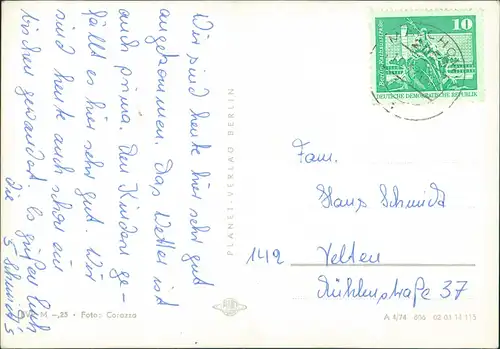 Wir sind heute hier sehr gut
angekommen. Das Wetter ist
auch prima. Den Kindern ge-
fällt es hier sehr gut. Wir
sind heute auch schon ein
bischen gewandert. Es grüßen Euch
die 5 Schmidt's
PLANET-VERLAG BERLIN
10
DEUTSCHE DEMOKRATISCHE REPUBLIK
Fam.
Hans Schmidt
142 Velten
Mühlenstraße 37
M -,25 • Foto: Corazza
A 1/74